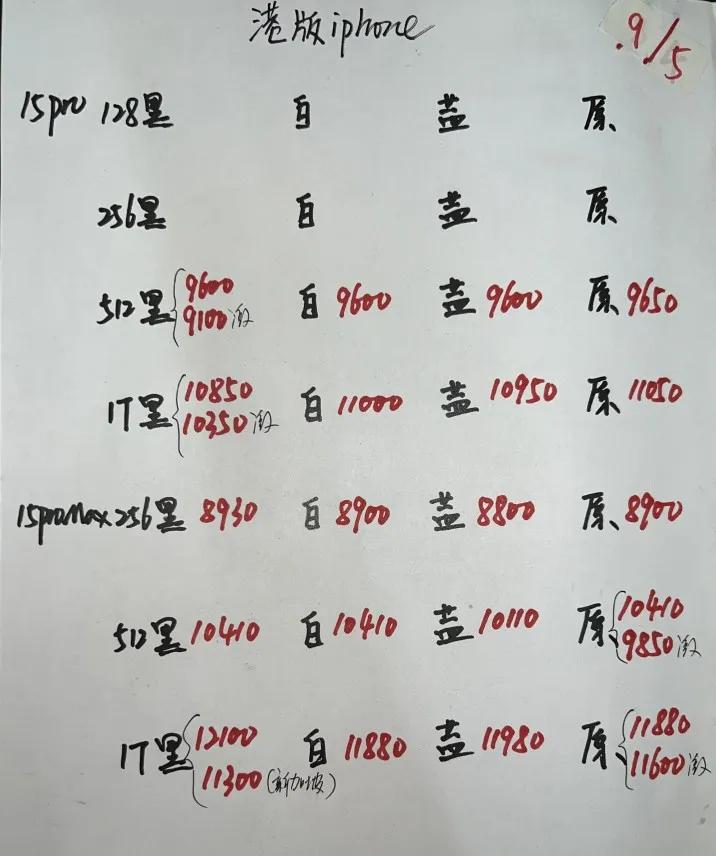 港版iphone 9/5
15pro 128黑 白 蓝 原
256黑 白 蓝 原
512黑 9600 9100激 白 9600 蓝 9600 原 9650
1T黑 10850 10350激 白 11000 蓝 10950 原 11050
15proMax 256黑 8930 白 8900 蓝 8800 原 8900
512黑 10410 白 10410 蓝 10110 原 10410 9850激
1T黑 12100 11300(新加坡) 白 11880 蓝 11980 原 11880 11600激